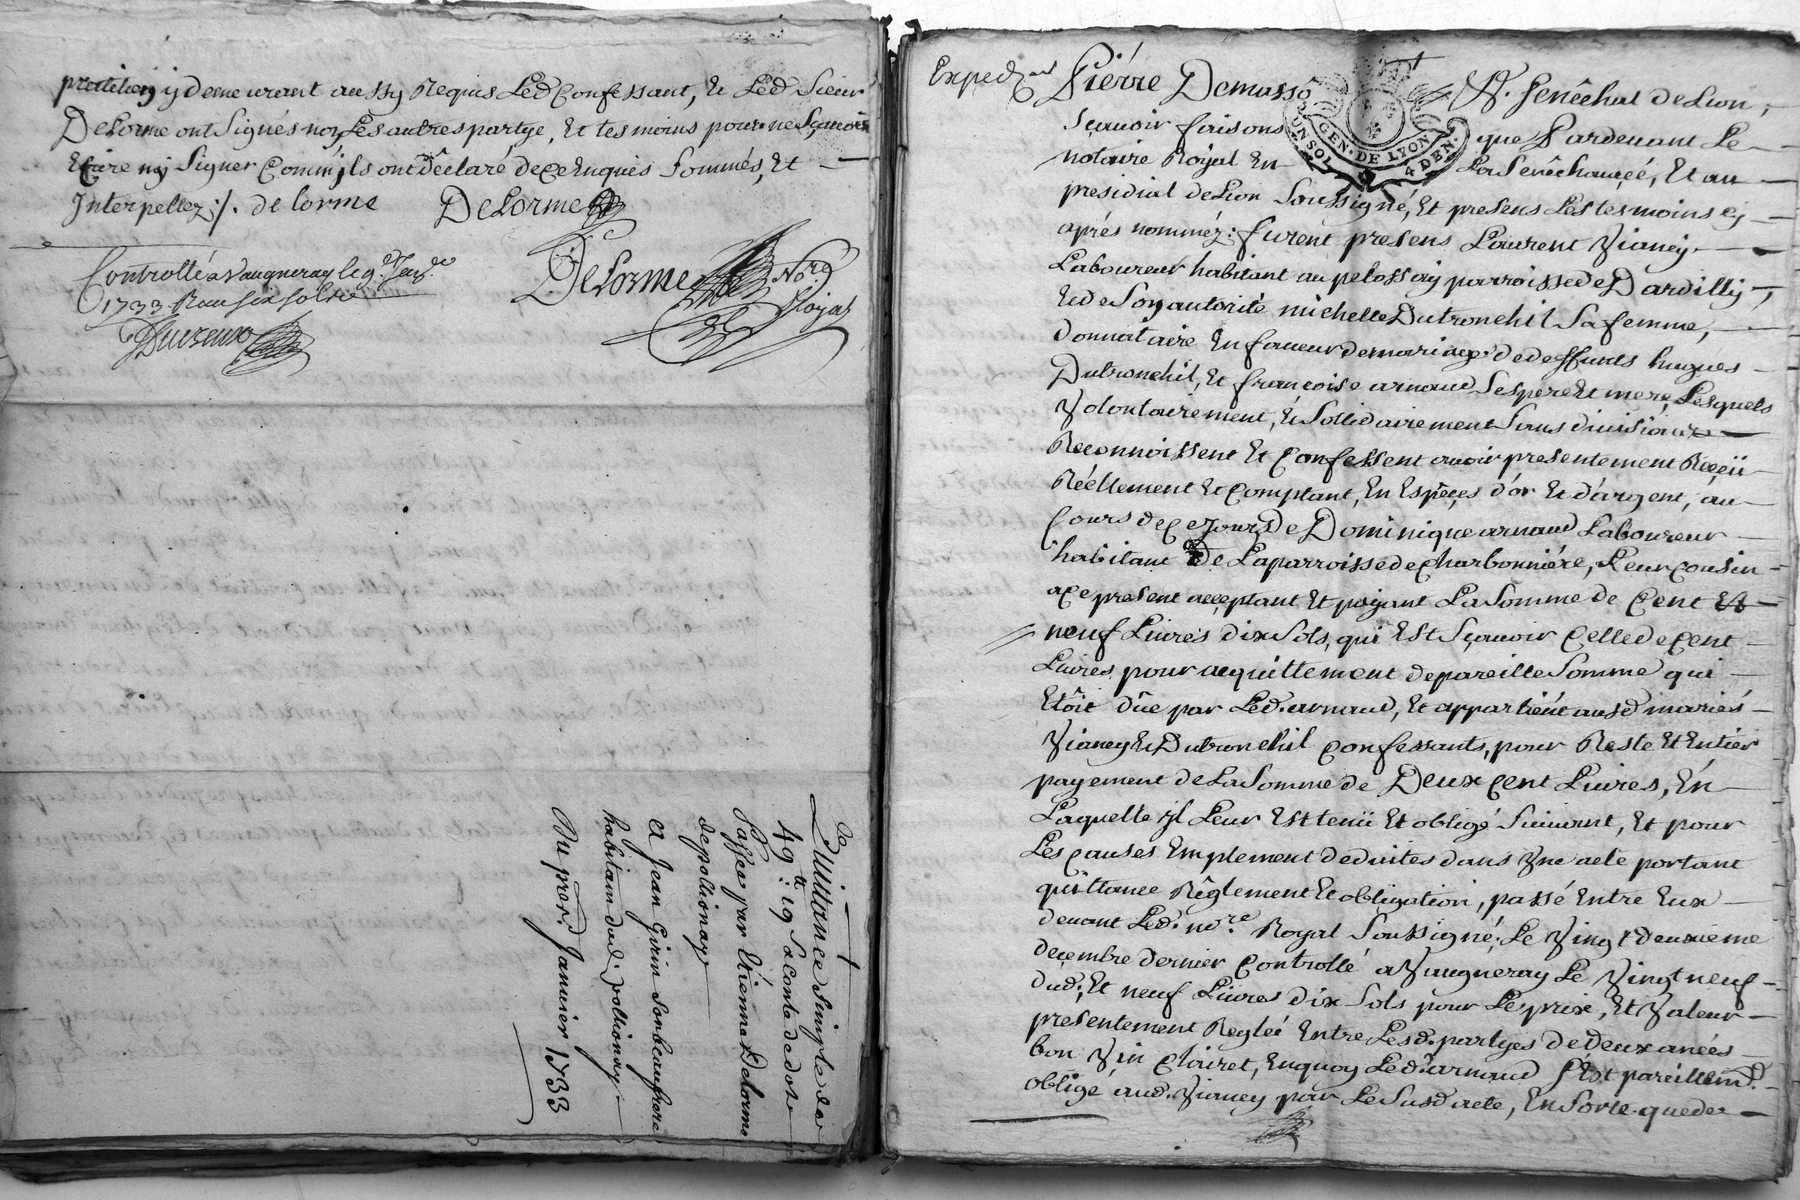 y demeurant aussy Requis Led Confessant, Et Led Sieur
Delorme ont Signés non Les autres partye, Et tesmoins pour ne Sçavoir
Ecrire ny Signer Comm'jls ont déclaré de ce Enquis Sommés, Et
Interpellez ./. de lorme Delorme
Controllé a Vaugneray le 9.e Janv.
1733. Reçu six sols
Delorme No.re
Royal
Quittance simple de
49 : 19 s a conte de dote
Passée par Etienne Delorme
de pollionay
a Jean Girin son beaufrere
habitant dud. pollionay
Du pr.er Janvier 1733
Exped.
Pierre Demasso S.r Senêchal de Lion,
GEN. DE LYON
UN SOL 4 DEN.
Sçavoir faisons que Pardevant Le
notaire Royal En La Senêchaucéé, Et au
presidial de Lion Soussigné, Et presens Les tesmoins cy
aprés nomméz : furent presens Laurent Vianey
Laboureur habitant au pelossay parroisse de Dardilly
Et de Son autorité michelle Dutronchil Sa femme,
donnataire En faveur de mariage de deffunts hugues
Dutronchil, Et francoise arnaud Ses pere Et mere, Lesquels
Volontairement, Et Sollidairement Sans division
Reconnoissent Et Confessent avoir presentement Reçeü
Réellement Et Comptant, En Espêçes d'or Et d'argent, au
Cours de Ce Jour, De Dominique arnaud Laboureur
habitant De La parroisse de Charbonniére, Leur Cousin
a Ce present acceptant Et payant La Somme de Cent Et
neuf Livres dix Sols, qui Est Sçavoir Celle de Cent
Livres pour acquittement de pareille Somme qui
Etôit dûe par Led. arnaud, Et appartient ausd mariés
Vianey Et Dutronchil Confessants, pour Reste Et Entier
payement de La Somme de Deux Cent Livres, En
Laquelle jl Leur Est tenü Et obligé Suivant, Et pour
Les Causes Emplement deduites dans Vne acte portant
quittance Règlement Et obligation, passé Entre Eux
devant Led. no.re Royal Soussigné, Le Vingt deuxieme
decembre dernier Controllé a Vaugneray Le Vingt neuf
dud ; Et neuf Livres dix Sols pour Le prix, Et Valeur
presentement Reglée Entre Lesd. partyes de deux anées
bon Vin Clairet, Enquoy Led. arnaud S'Est pareillem.t
obligé aud. Vianey par Le Susd acte, En Sorte que de